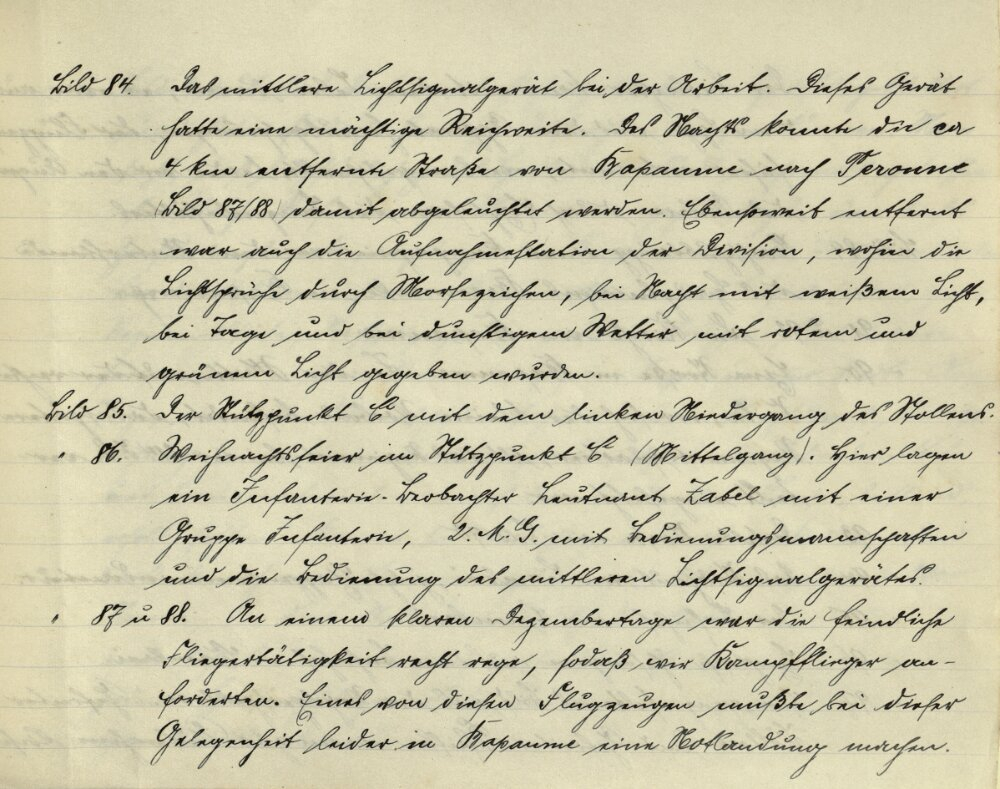 Bild 84. Das mittlere Lichtsignalgerät bei der Arbeit. Dieses Gerät
hatte eine mächtige Reichweite. Des Nachts konnte die ca
4 km entfernte Straße von Bapaume nach Peronne
(Bild 87/88) damit abgeleuchtet werden. Ebensoweit entfernt
war auch die Aufnahmestation der Division, wohin die
Lichtsprüche durch Morsezeichen, bei Nacht mit weißem Licht,
bei Tage und bei dunstigem Wetter mit rotem und
grünem Licht gegeben wurden.
Bild 85. Der Stützpunkt C mit dem linken Niedergang des Stollens.
" 86. Weihnachtsfeier im Stützpunkt C (Mittelgang). Hier lagen
ein Infanterie-Beobachter Leutnant Zabel mit einer
Gruppe Infanterie, 2. M.G. mit Bedienungsmannschaften
und die Bedienung des mittleren Lichtsignalgerätes.
" 87 u 88. An einem klaren Dezembertage war die feindliche
Fliegertätigkeit recht rege, sodaß wir Kampfflieger an-
forderten. Eines von diesen Flugzeugen mußte bei dieser
Gelegenheit leider in Bapaume eine Notlandung machen.